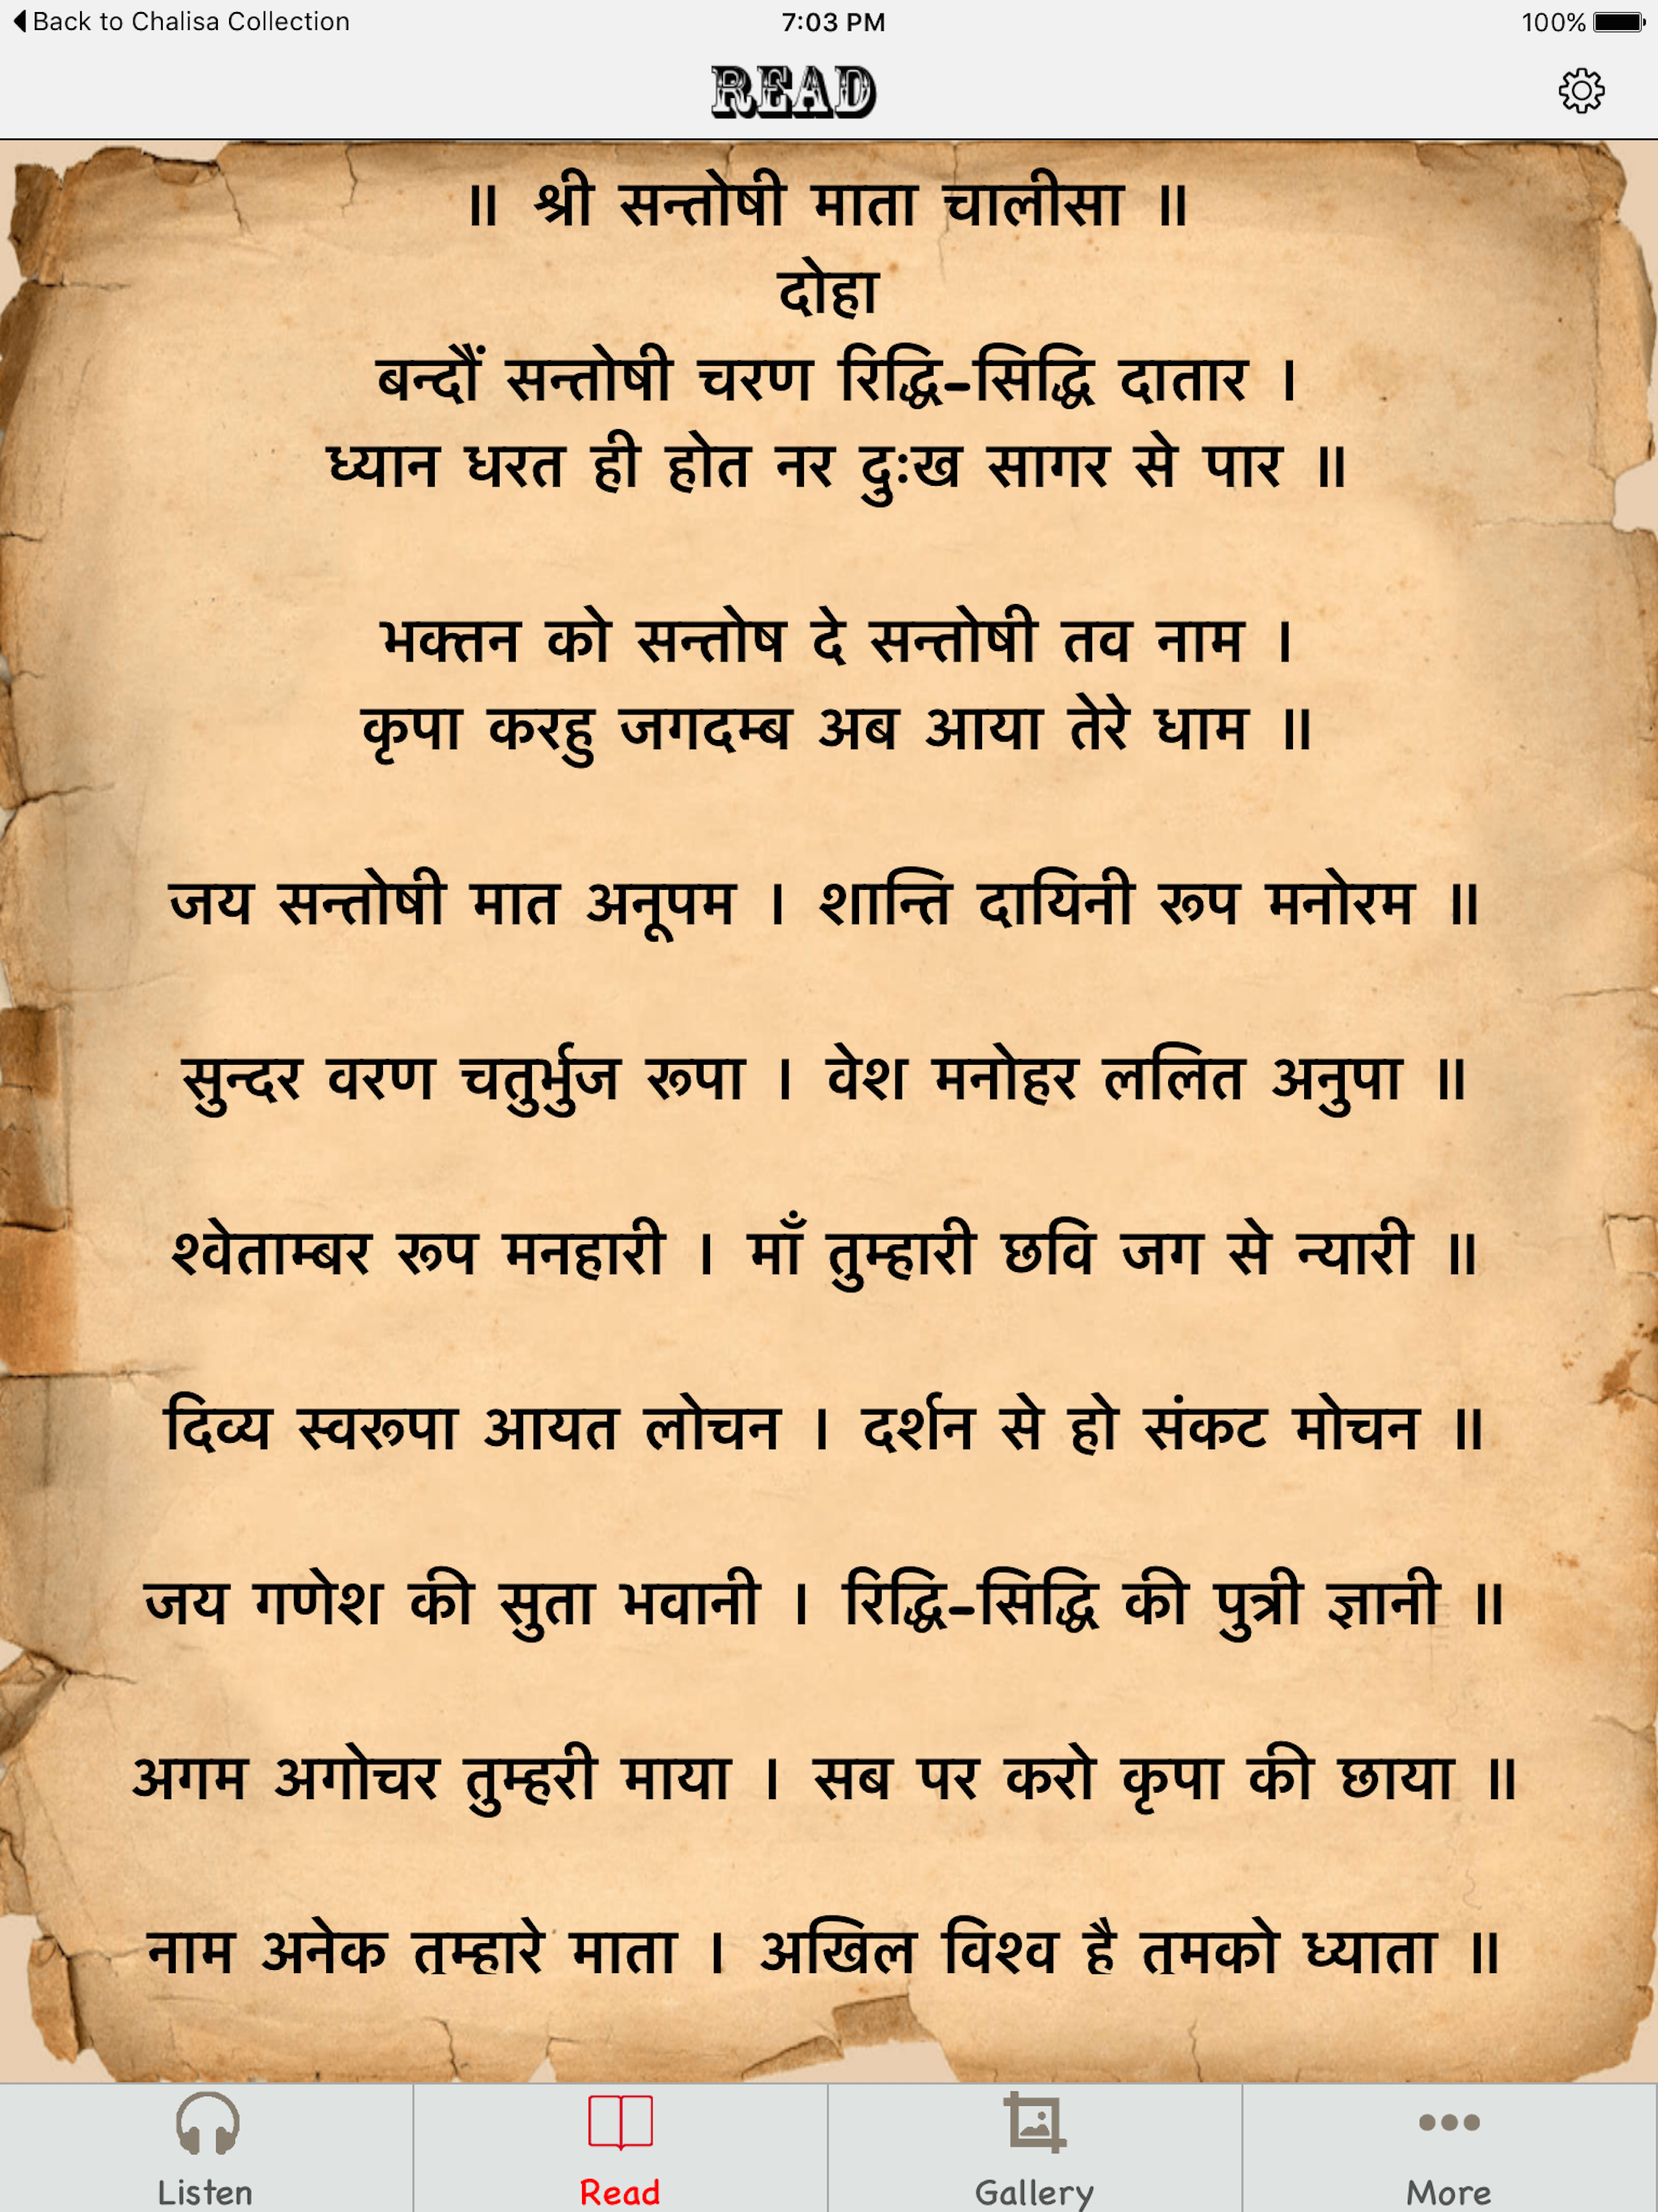 Back to Chalisa Collection 7:03 PM 100%
READ
॥ श्री सन्तोषी माता चालीसा ॥
दोहा
बन्दौं सन्तोषी चरण रिद्धि-सिद्धि दातार ।
ध्यान धरत ही होत नर दुःख सागर से पार ॥
भक्तन को सन्तोष दे सन्तोषी तव नाम ।
कृपा करहु जगदम्ब अब आया तेरे धाम ॥
जय सन्तोषी मात अनूपम । शान्ति दायिनी रूप मनोरम ॥
सुन्दर वरण चतुर्भुज रूपा । वेश मनोहर ललित अनुपा ॥
श्वेताम्बर रूप मनहारी । माँ तुम्हारी छवि जग से न्यारी ॥
दिव्य स्वरूपा आयत लोचन । दर्शन से हो संकट मोचन ॥
जय गणेश की सुता भवानी । रिद्धि-सिद्धि की पुत्री ज्ञानी ॥
अगम अगोचर तुम्हरी माया । सब पर करो कृपा की छाया ॥
नाम अनेक तुम्हारे माता । अखिल विश्व है तुमको ध्याता ॥
Listen Read Gallery More